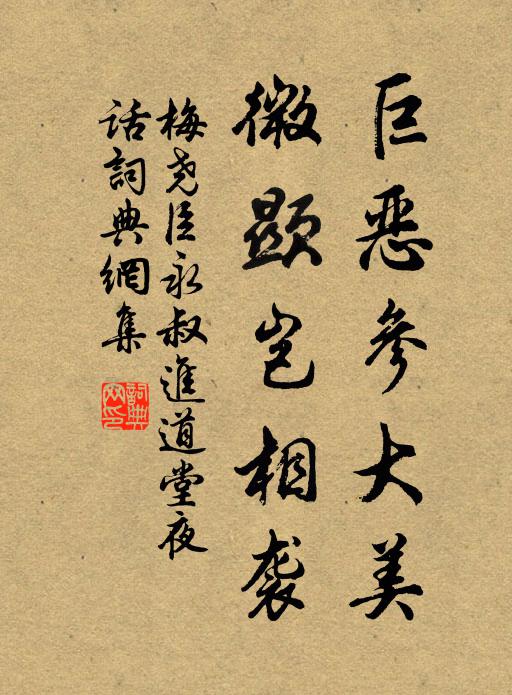 巨恶参大美
微显岂相袭
梅尧臣永叔進道堂夜
话詞典網集
詞典网印